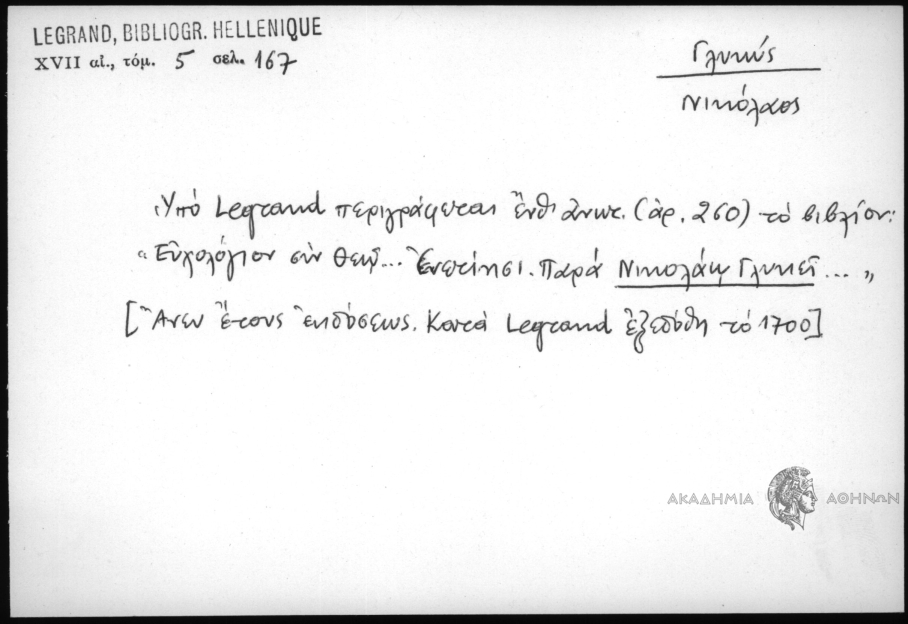 LEGRAND, BIBLIOGR. HELLENIQUE
XVII αἰ., τόμ. 5 σελ. 167
Γλυκύς
Νικόλαος
Ὑπό Legrand περιγράφεται ἔνθ' ἀνωτ. (ἀρ. 260) τὸ βιβλίον:
«Εὐχολόγιον σὺν Θεῷ... Ἐνετίῃσι. Παρά Νικολάῳ Γλυκεῖ ...»
[Ἄνευ ἔτους ἐκδόσεως. Κατὰ Legrand ἐξεδόθη τὸ 1700]
ΑΚΑΔΗΜΙΑ ΑΘΗΝΩΝ